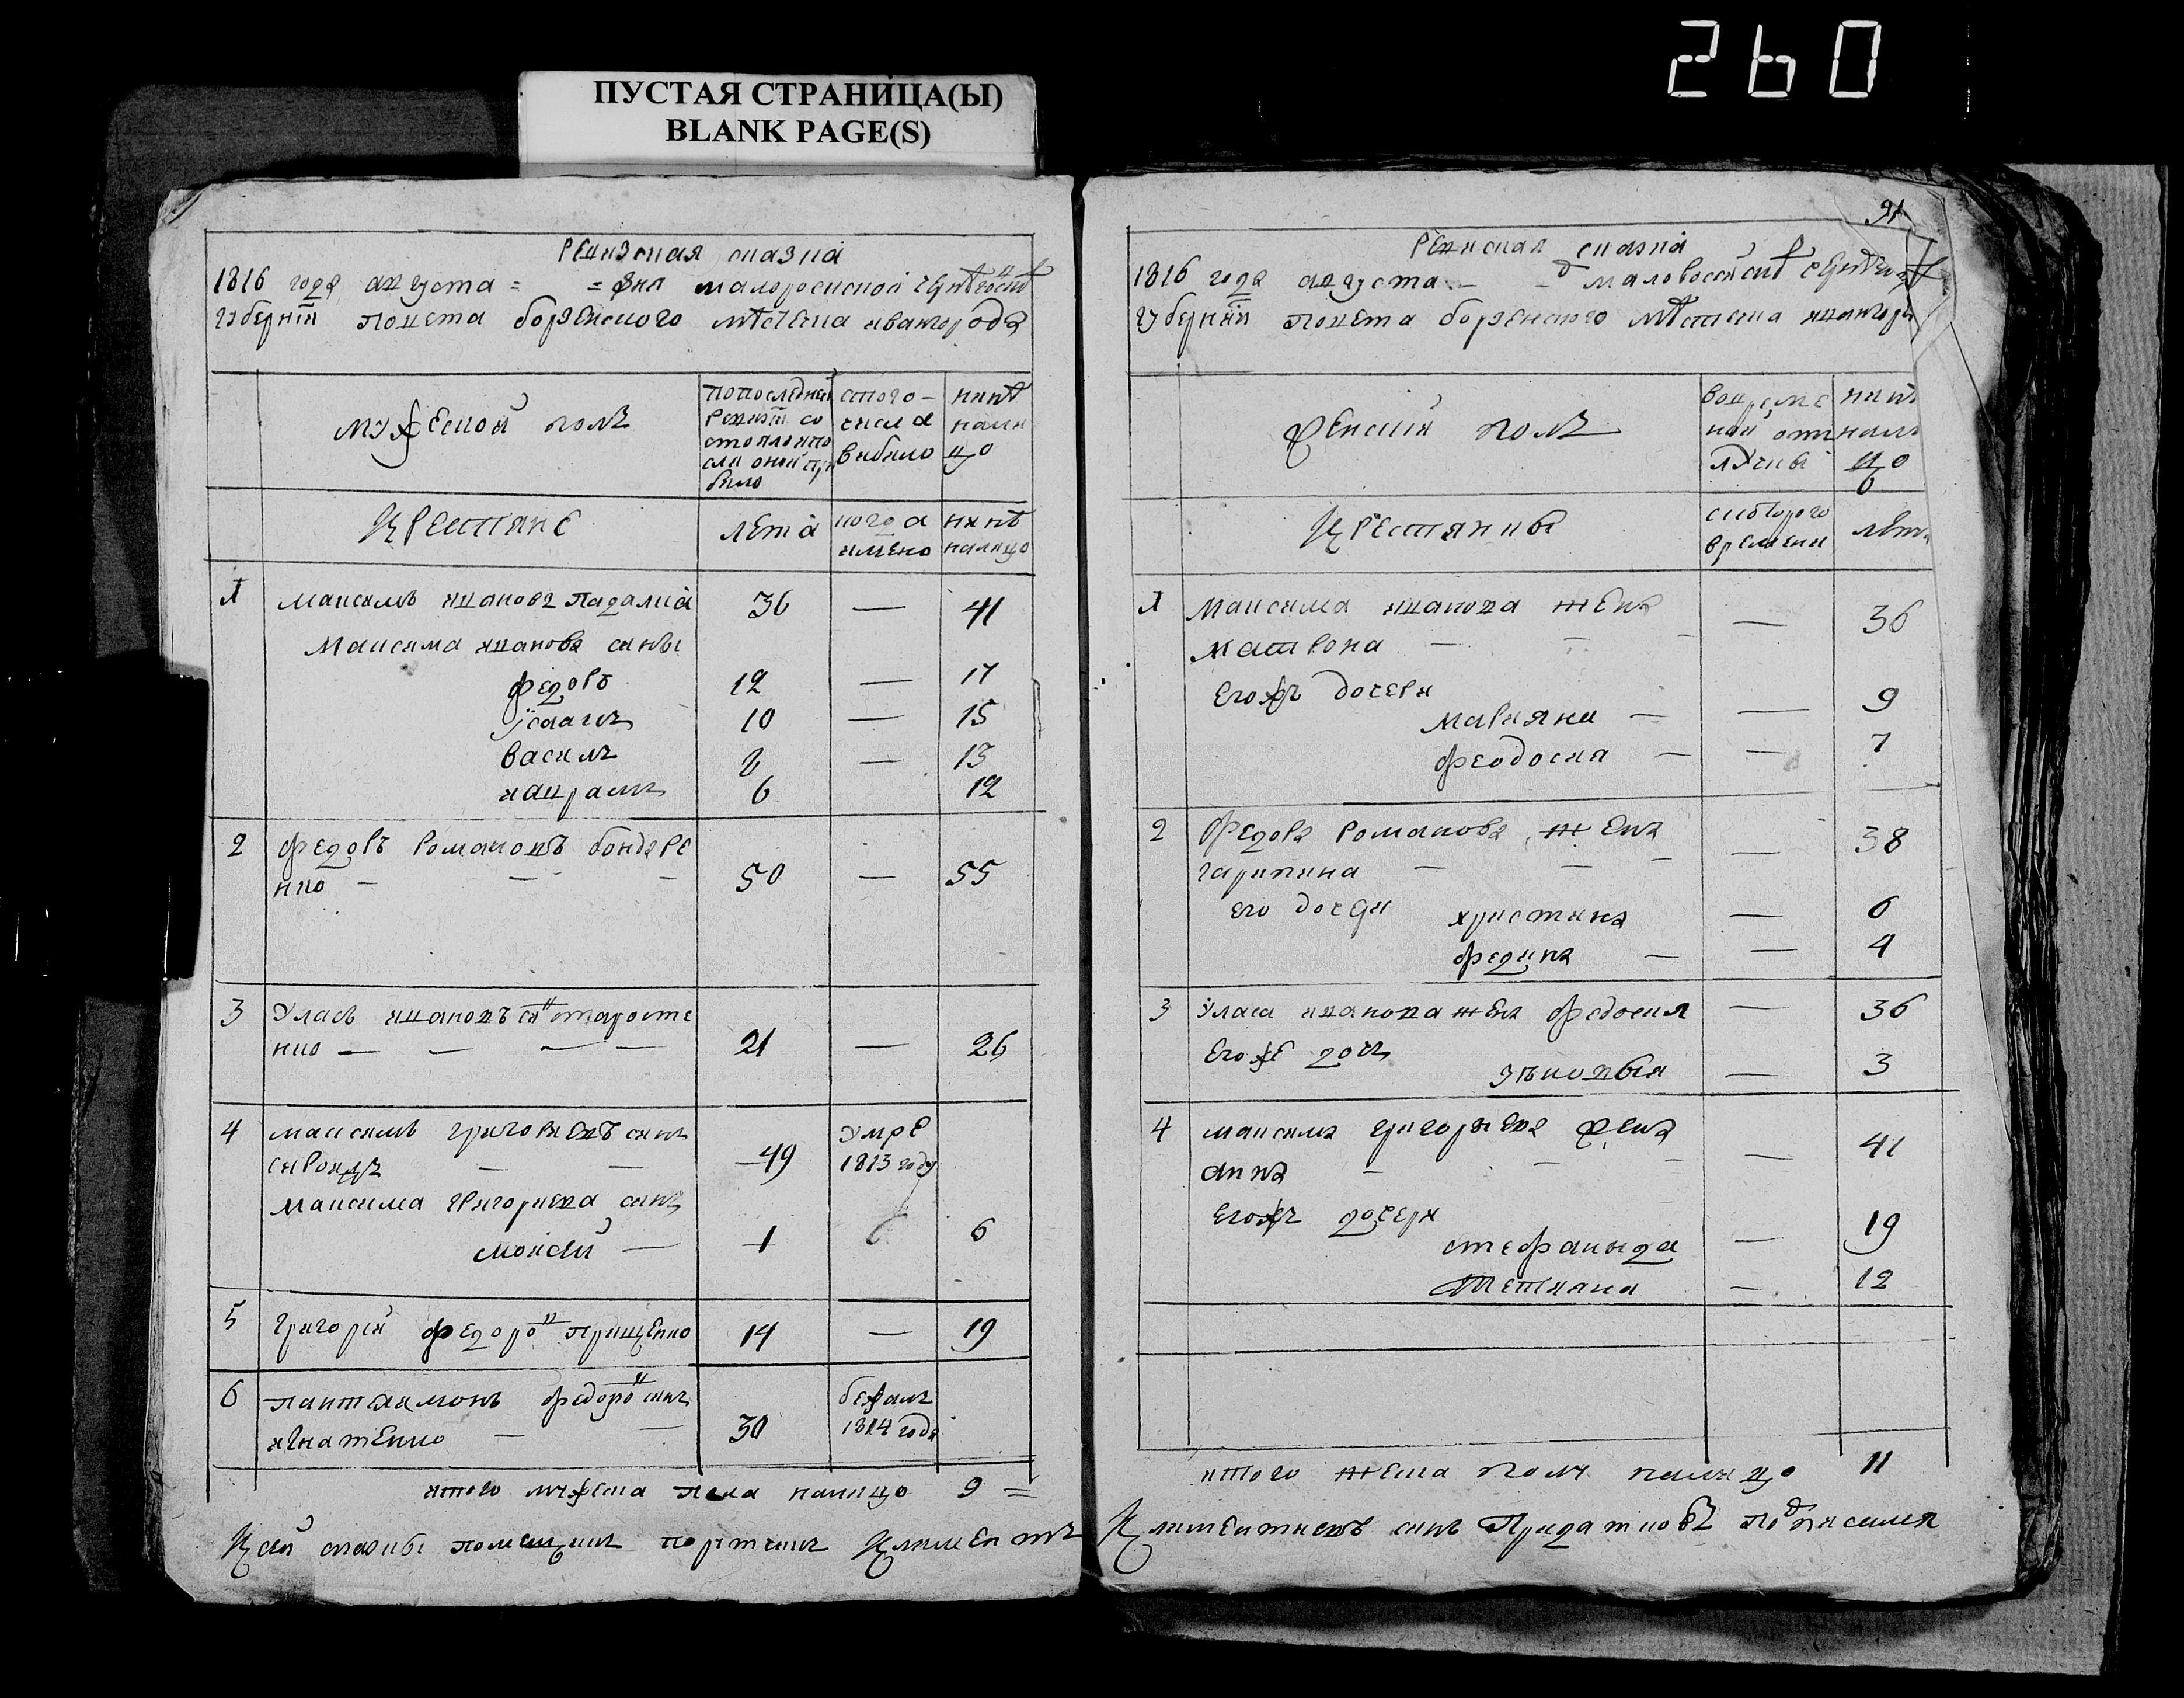 260
ПУСТАЯ СТРАНИЦА(Ы)
BLANK PAGE(S)
Ревизская сказка
1816 года августа = = дня малоросиской черниговской
губернии повета борзенского местечка ивангорода
мужеской полъ
по последней ревизии состояло и после оной прибило
с того числа выбило
ныне налицо
крестяне
лета
когда имено
ныне налицо
1 Максимъ ивановъ Падалка 36 — 41
Максима иванова сины
федоръ 12 — 17
исаакъ 10 — 15
василъ 8 — 13
иаврамъ 6 12
2 федоръ романовъ бондаре
нко — — — 50 — 55
3 Уласъ ивановъ снъ старосте
нко — — — — 21 — 26
4 максимъ григориевъ синъ
— — 49 умре 1813 году
Максима григориева синъ
моисей — 1 6
5 григорий федоровъ прищенко 14 — 19
6 пантелимонъ федоровъ синъ
игнатенко — — 30 бежалъ 1814 года
итого мужеска пола налицо 9 =
К сей сказки помещикъ портчикъ Климентъ
91
Ревиская сказка
1816 года августа — — д малоросийской черниговской
губернии повета борзенского местечка ивангорода
Женский полъ
во временной отлучки
ныне налицо
крестянки
с которого времени
лета
1 Максима иванова жена
матрона — — — — 36
егожъ дочери
марияна — — 9
феодосия — — 7
2 Федора романова жена
гарпина — — — — 38
его дочери христина — 6
федина — — 4
3 Уласа иванова жена федосия — 36
егоже дочъ
зиновыя — 3
4 максима григорьева жена
анна — — — — 41
егожъ дочери
стефанида — 19
Тетияна — 12
итого женска полъ налицо 11
Климентиевъ синъ Придатковъ подписался